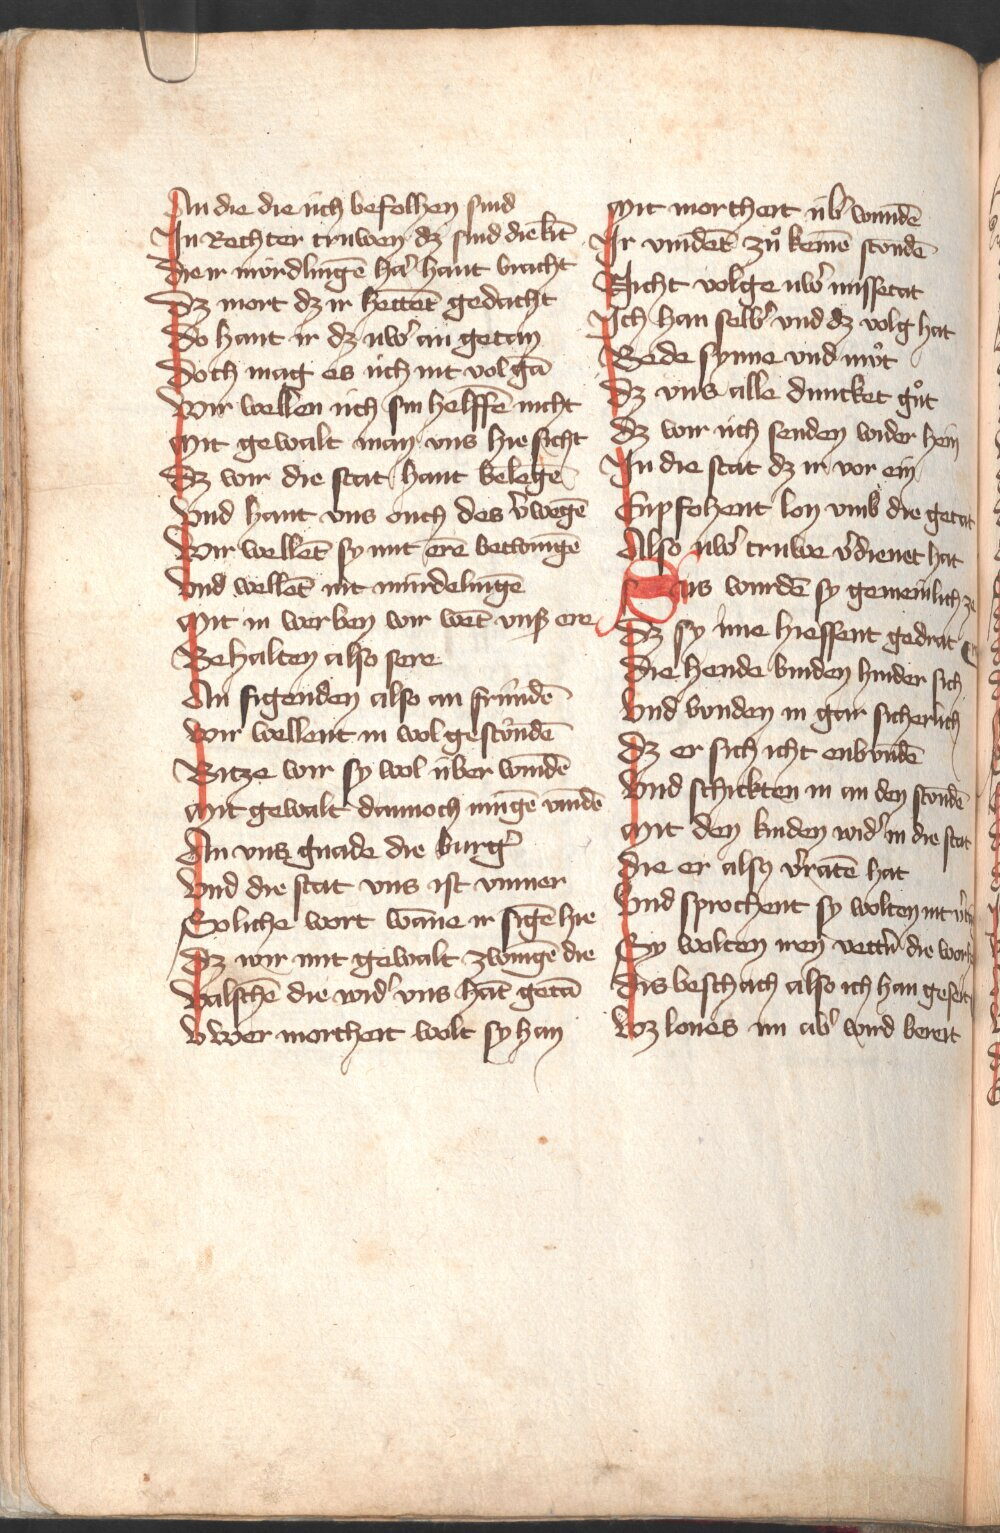 An die die üch befolhen sind
In Rechter truwen dz sind die kīt
Die ir mördlingē haꝰ hant bracht
Dz mort dz ir hettēt gedacht
Do hant ir dz uwꝰ an getan
Doch mag es üch nit volgā
Wir wellen üch sin helffē nicht
Mit gewalt man vns hie sicht
Dz wir die stat hant belegē
Vnd hant vns ouch des v̓wegē
Wir wellēt sy mit erē betwingē
Vnd wellēt nit mürdelingē
Mit in werben wir wēt vnß ere
Behalten also sere
An figenden also an fründē
Wir wellent in wol gestöndē
Bitze wir sy wol über windē
Mit gewalt dannoch mügē vindē
An vns gnade die burgꝰ
Vnd die stat vns ist vnmer
Soliche wort wāne ir sigē hie
Dz wir mit gewalt zwingē die
Valschē die widꝰ vns hāt getā
Vwer mortheit wolt sy han
Mit mortheit übꝰ windē
Ir vindēt zů keinē stondē
Nicht volge uwꝰ missetat
Ich han selbꝰ vnd dz volg hat
Bede synne vnd můt
Dz vns alle duncket gůt
Dz wir üch senden wider hein
In die stat dz ir vor ein
Enpfohent lon vmb die getat
Also uwꝰ truwe v̓dienet hat
Sus wurdē sy gemeinlich ze
Dz sy ime hiessent gedrat
Die hende binden hinder sich
Vnd bonden in gar sicherlich
Dz er sich icht enbündē
Vnd schickten in an den stonde
Mit den kinden widꝰ in die stat
Die er also v̓ratē hat
Vnd sprochent sy wolten nit
Sy wolten iren vettꝰn die
Dis beschach also ich han geseit
Wz lones im abꝰ wird bereit